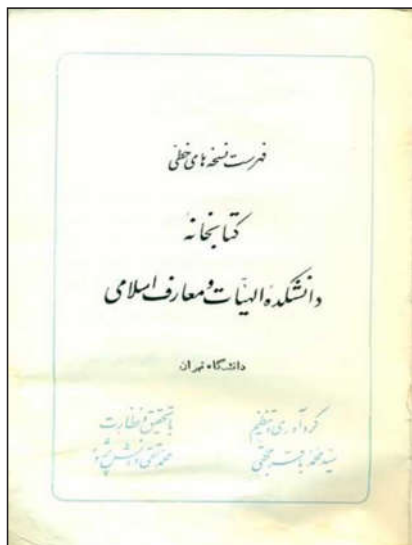 فهرست نسخه های خطی
کتابخانهٔ
دانشکدهٔ الهیات و معارف اسلامی
دانشگاه تهران
گردآوری و تنظیم
سید محمد باقر حجتی
با تحقیق و نظارت
محمد تقی دانش پژوه